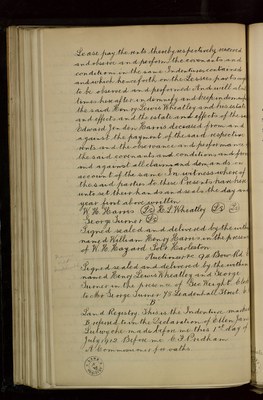 Lease pay the rents thereby respectively reserved
and observe and perform the covenants and
conditions in the same Indentures contained
and which henceforth on the Lessees part ought
to be observed and performed And will at all
times hereafter indemnify and keep indemnified
the said Henry Lewis Wheatley and his estate
and effects and the estate and effects of the said
Edward Harris deceased from and
against the payment of the said respective
rents and the observance and performance
the said covenants and conditions and from
and against all claims and demands on
account of the same In witness whereof
the said parties to these Presents have here
unto set their hands and seals the day and
year first above written
W. H. Harris LS H. L. Wheatley LS
George Turner LS
Signed sealed and delivered by the within
named William Henry Harris in the presence
of W. H. Hazard Harleston
Auctioneer
Signed sealed and delivered by the within
named Henry Lewis Wheatley and George
Turner in the presence of Geo Wright Clerk
to Mr George Turner 78 Leadenhall Street
B
Land Registry This is the Indenture marked
B referred to in the Declaration of Ellen Jane
made before me this 1st day of
July 1912 Before me
A Commissioner for oaths